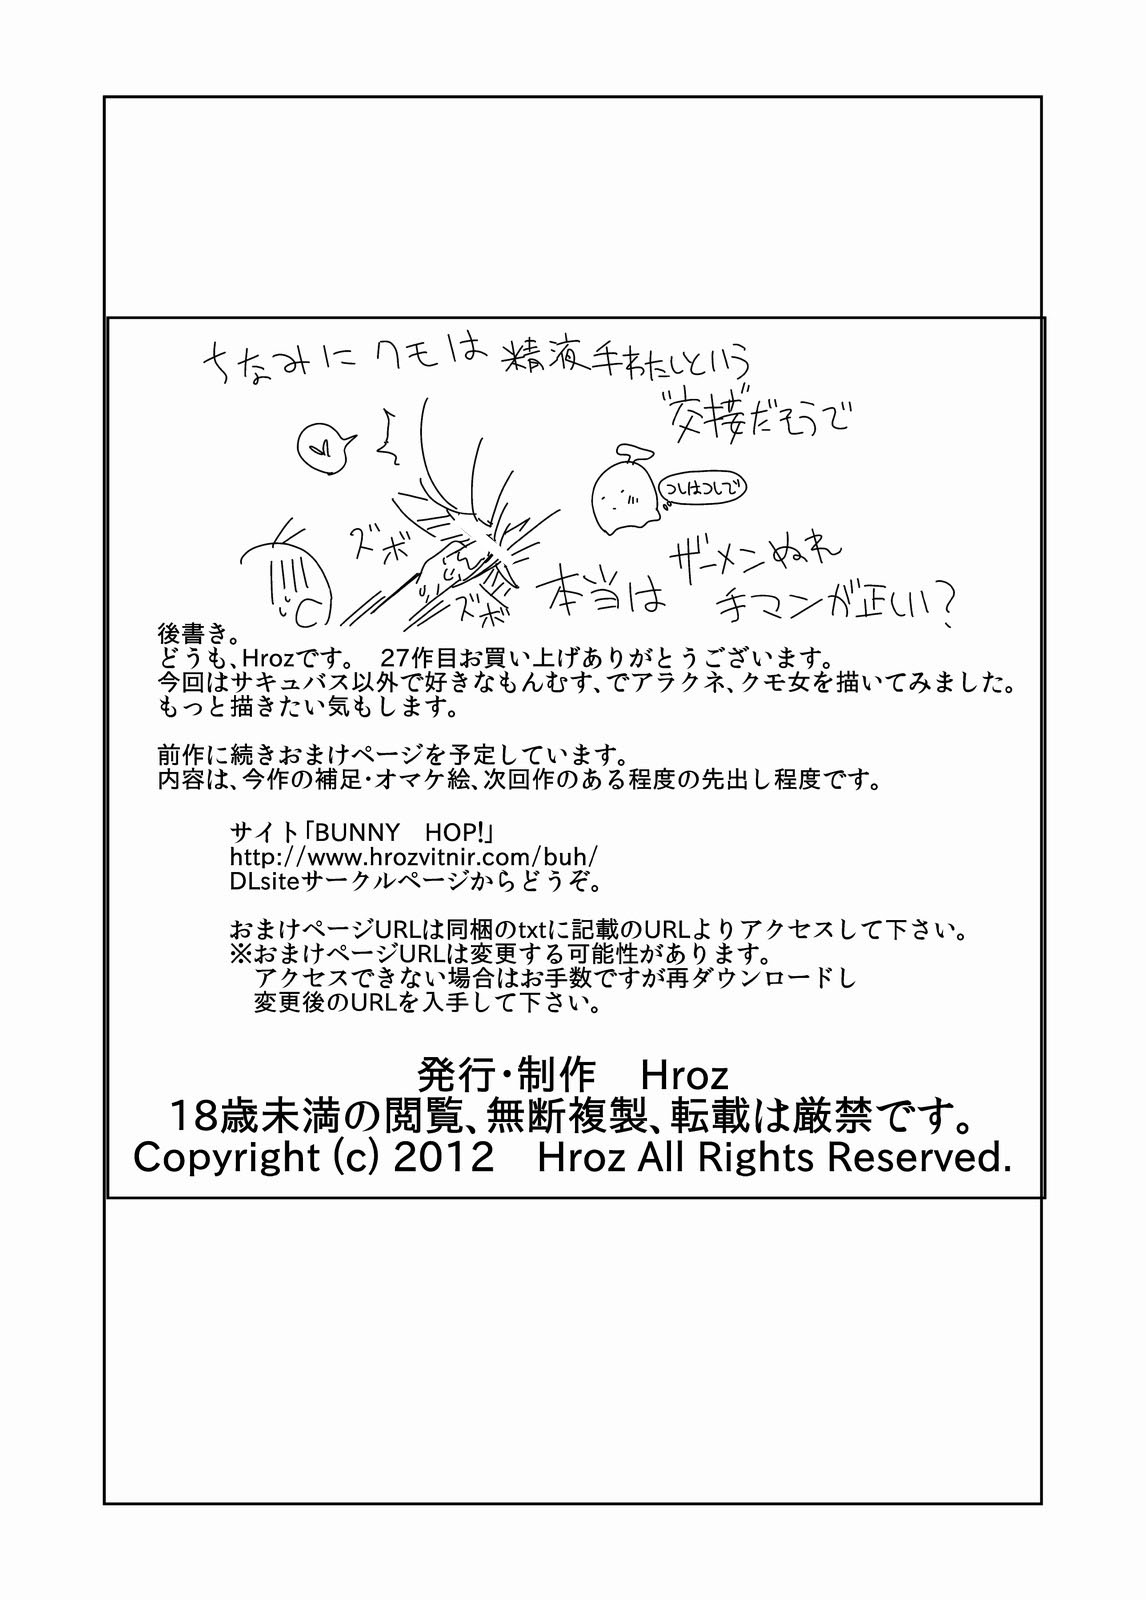 ちなみにクモは精液手わたしという
"交接"だそうで
つしはつしで
ズボ
ザーメンぬれ
本当は
手マンが正しい?
ズボ
後書き。
どうも、Hrozです。　27作目お買い上げありがとうございます。
今回はサキュバス以外で好きなもんむす、でアラクネ、クモ女を描いてみました。
もっと描きたい気もします。
前作に続きおまけページを予定しています。
内容は、今作の補足・オマケ絵、次回作のある程度の先出し程度です。
サイト「BUNNY　HOP!」
http://www.hrozvitnir.com/buh/
DLsiteサークルページからどうぞ。
おまけページURLは同梱のtxtに記載のURLよりアクセスして下さい。
※おまけページURLは変更する可能性があります。
アクセスできない場合はお手数ですが再ダウンロードし
変更後のURLを入手して下さい。
発行・制作　Hroz
18歳未満の閲覧、無断複製、転載は厳禁です。
Copyright (c) 2012　Hroz All Rights Reserved.